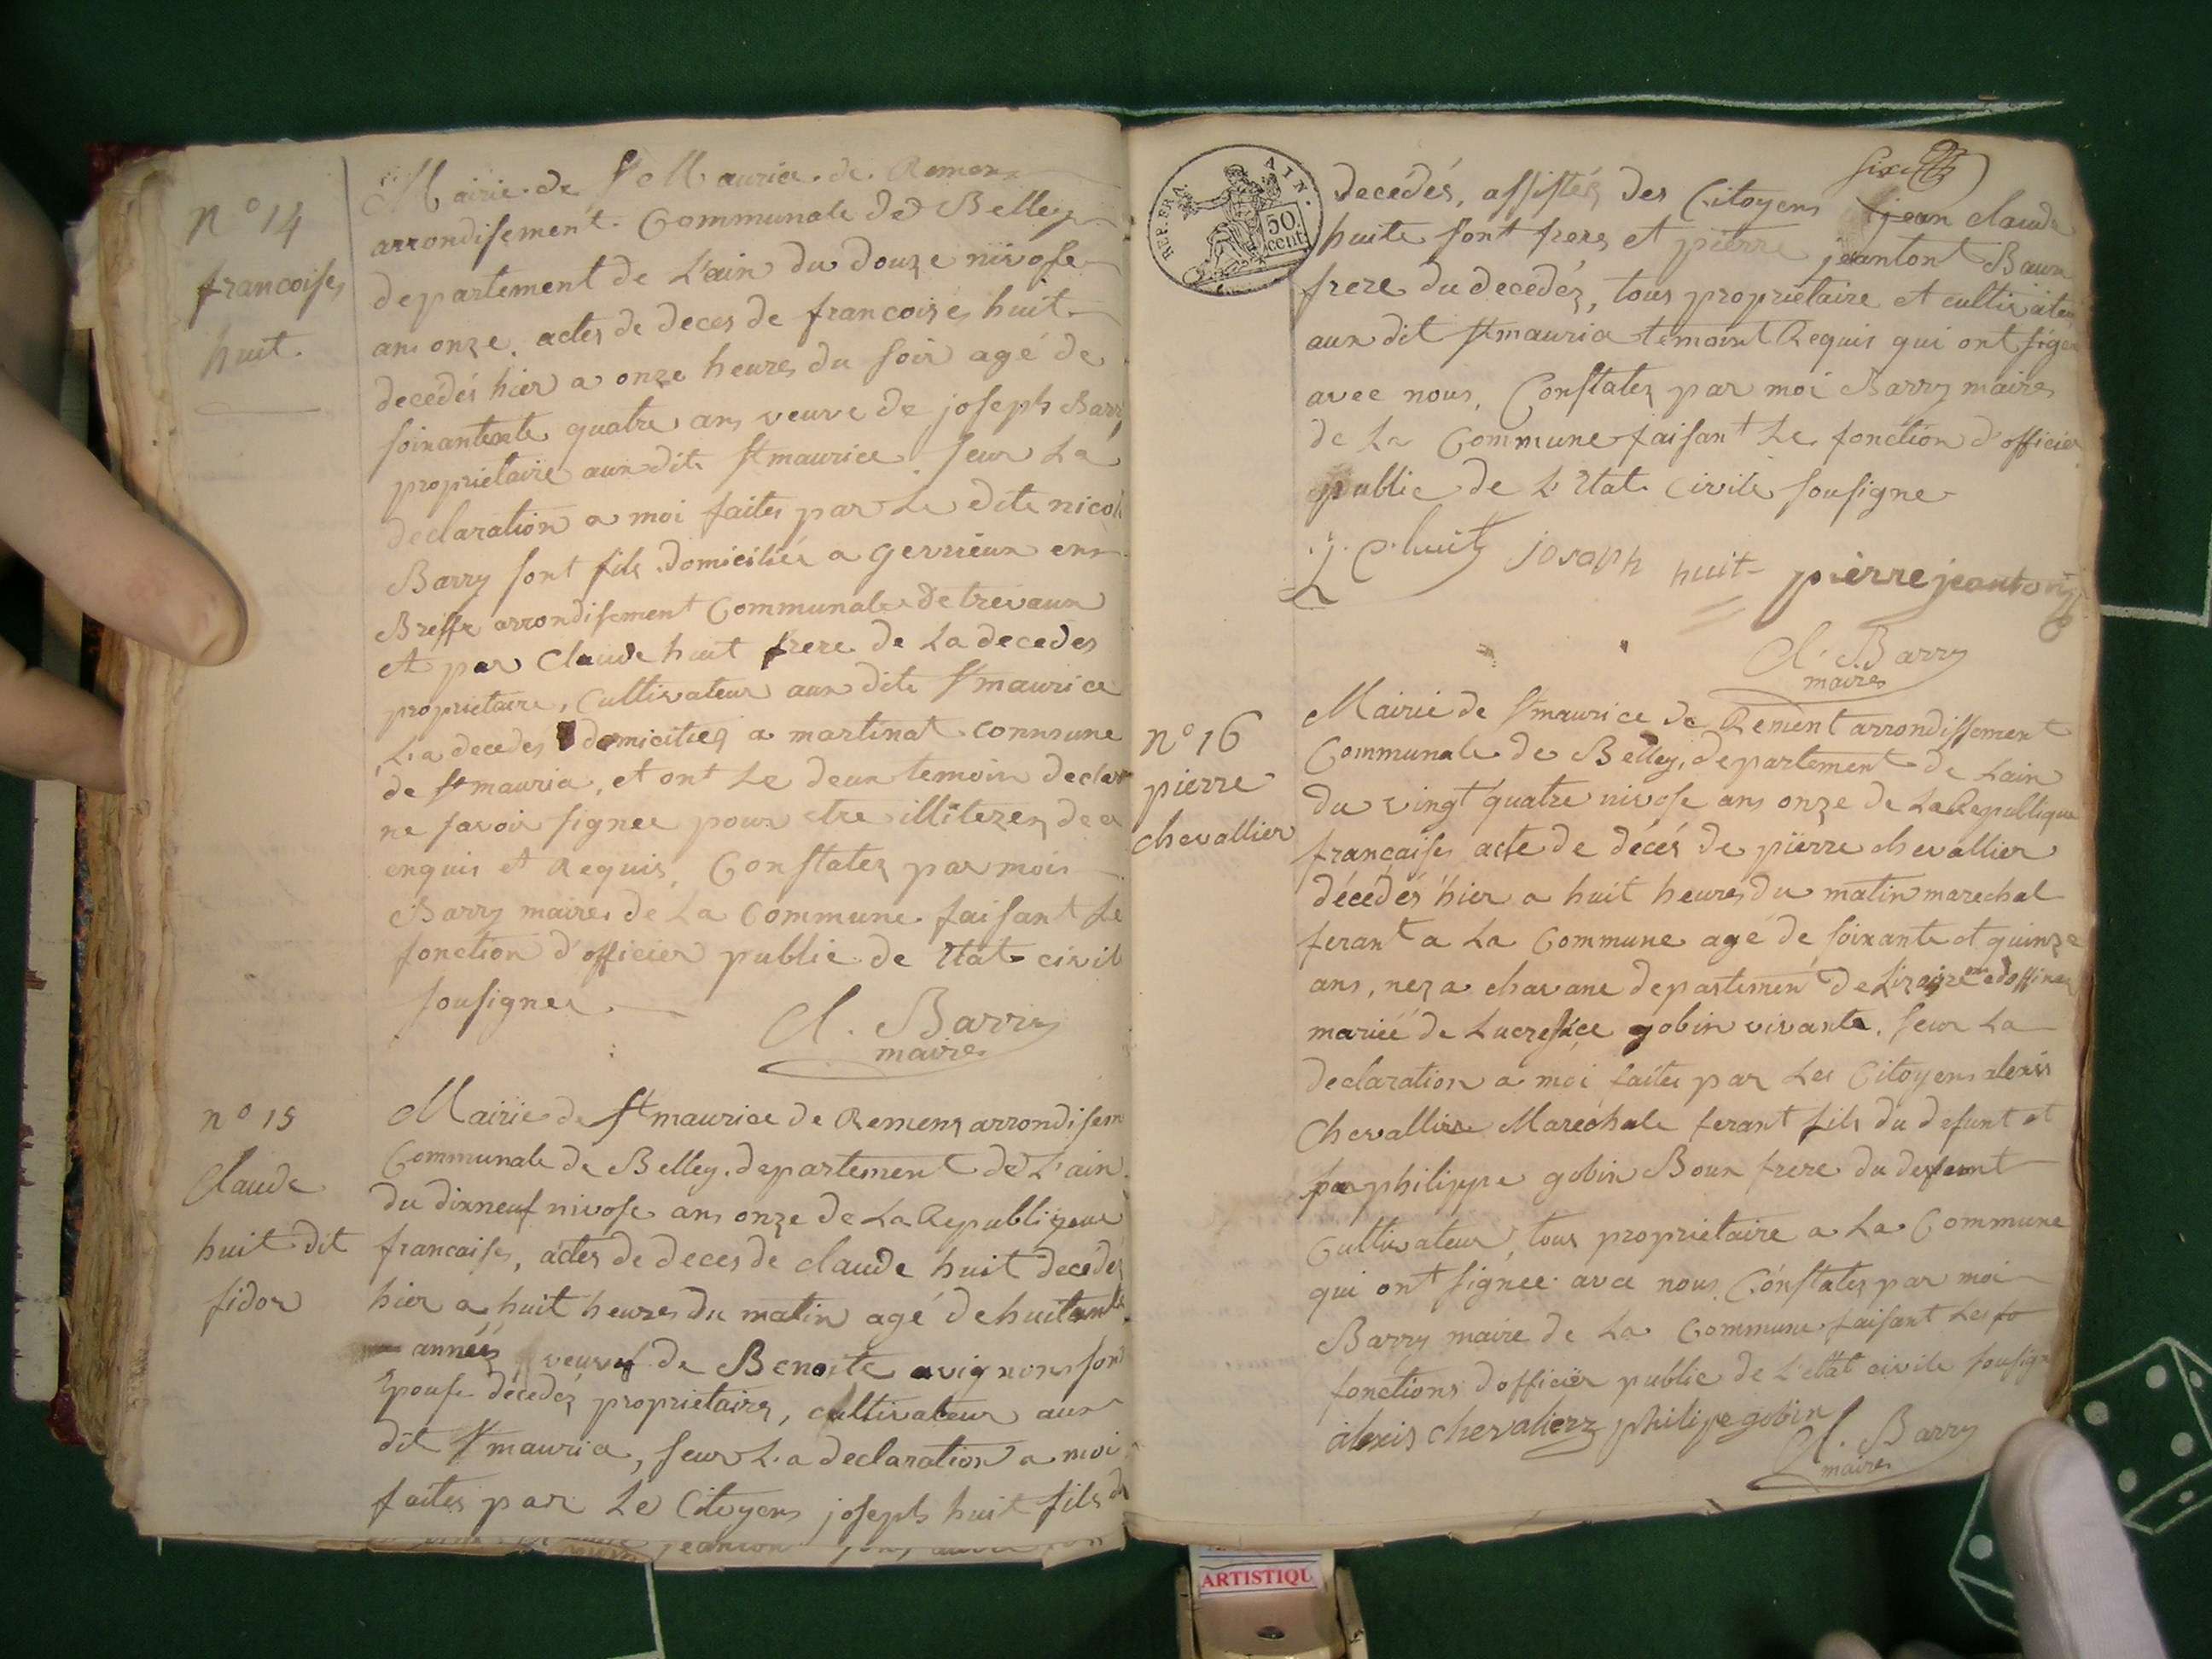 n° 14
francoises
huit.
Mairie de St Maurice de Remens
arrondisement Communale de Belley
departement de L'ain du douze nivose
ans onze. actes de deces de francoises huit
decédés hier a onze heures du soir agé de
soixantente quatre ans veuve de joseph Barry
propriétaire aux dits St maurice. seur La
declaration a moi faites par Le dite nicola
Barry sont fils domiciliés a gevrieux en
Breffe arrondisement Communale de trevaux
et par Claude huit frere de La decedes
proprietaire, Cultivateur aux dits St maurice
La decedes domicilies a martinat commune
de St mauria, et ont Le deux temoin declar
ne savoir signer pour etre illiterez de a
enquis et Requis, Constatez par mois
Barry maires de La Commune faisant Le
fonction d'officier public de Etat civil
sousignes.
Cl. Barry
maires
n° 15
Claude
huit dit
fidor
Mairie de St maurice de Remens arrondisem
Communale de Belley departement de L'ain
du dixneuf nivose ans onze de La Republique
francaises, actes de deces de claude huit decédés
hier a huit heures du matin agé de huitante
années veuve de Benoite avignon son
Epouse décedés propriétaires, cultivateur aux
dit St mauria, seur La declaration a moi
faites par Le Citoyens joseph huit fils du
REP. FRA. AIN.
50 cent.
decédés, assistés des Citoyens jean claude
huite sont freres et pierre jeantont Baux
frere du decédés, tous propriétaire et cultivateur
aux dit St mauria temoint Requis qui ont signe
avec nous, Constatez par moi Barry maires
de La Commune faisant Le fonction d'officier
public de L'Etat civile sousigne
J. C. huit joseph huit pierre jeanton
Cl. Barry
maires
n° 16
pierre
chevallier
Mairie de St maurice de Rement arrondissement
Communale de Belley, departement de Lain
du vingt quatre nivose ans onze de La Republique
françaises acte de décés de pierre chevallier
décédés hier a huit heures du matin marechal
ferant a La Commune agé de soixante et quinze
ans, nez a chavane departemen de Lizaire
mariéé de Lucresice gobin vivante. seur La
declaration a moi faites par Les Citoyens alexis
Chevallier Marechale ferant fils du defunt et
par philippe gobin Boux frere du defunt
Cultivateur, tous propriétaire a La Commune
qui ont signée avce nous. Constatez par moi
Barry maire de La Commune faisant Les fo
fonctions d'officier public de L'etat civile sousigne
alexis chevalierz philipe gobin
Cl. Barry
maires
ARTISTIQU